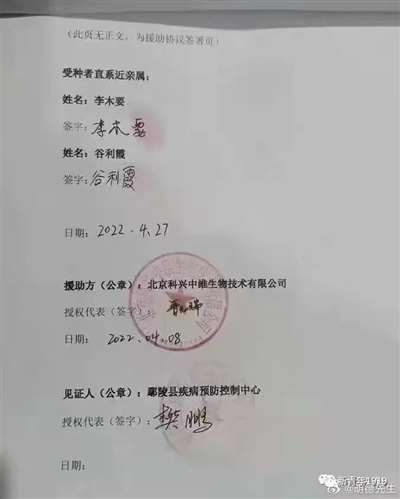 （此页无正文，为援助协议签署页）
受种者直系近亲属：
姓名：李木要
签字：李木要
姓名：谷利霞
签字：谷利霞
日期：2022.4.27
援助方（公章）：北京科兴中维生物技术有限公司
授权代表（签字）：
日期：2022.04.08
见证人（公章）：鄢陵县疾病预防控制中心
授权代表（签字）：樊鹏
日期：
新青年1919
@明德先生